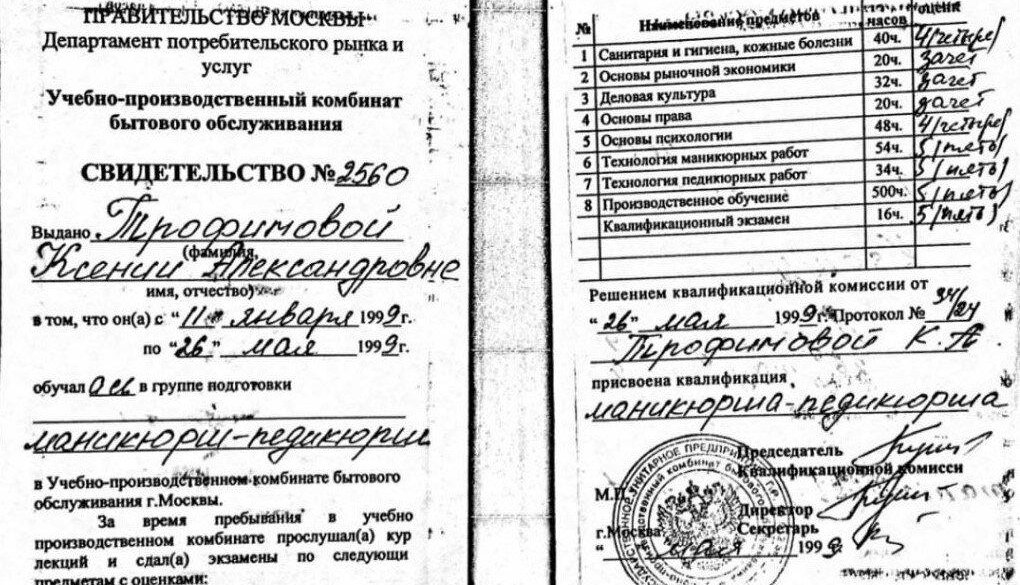 ПРАВИТЕЛЬСТВО МОСКВЫ
Департамент потребительского рынка и
услуг
Учебно-производственный комбинат
бытового обслуживания
СВИДЕТЕЛЬСТВО № 2560
Выдано Трофимовой
(фамилия,
Ксении Александровне
имя, отчество)
в том, что он(а) с "11" января 1999г.
по "26" мая 1999г.
обучалась в группе подготовки
маникюрш-педикюрш
в Учебно-производственном комбинате бытового
обслуживания г.Москвы.
За время пребывания в учебно
производственном комбинате прослушал(а) кур
лекций и сдал(а) экзамены по следующи
предметам с оценками:
№ Наименование предметов часов оценк
1 Санитария и гигиена, кожные болезни 40ч. 4/четыре/
2 Основы рыночной экономики 20ч. зачет
3 Деловая культура 32ч. зачет
4 Основы права 20ч. зачет
5 Основы психологии 48ч. 4/четыре/
6 Технология маникюрных работ 54ч. 5/пять/
7 Технология педикюрных работ 34ч. 5/пять/
8 Производственное обучение 500ч. 5/пять/
Квалификационный экзамен 16ч. 5/пять/
Решением квалификационной комиссии от
"26" мая 1999г. Протокол № 34/24
Трофимовой К. А.
присвоена квалификация
маникюрша-педикюрша
Председатель
Квалификационной комисси
М.П.
Директор
г.Москва Секретарь
" мая 1999